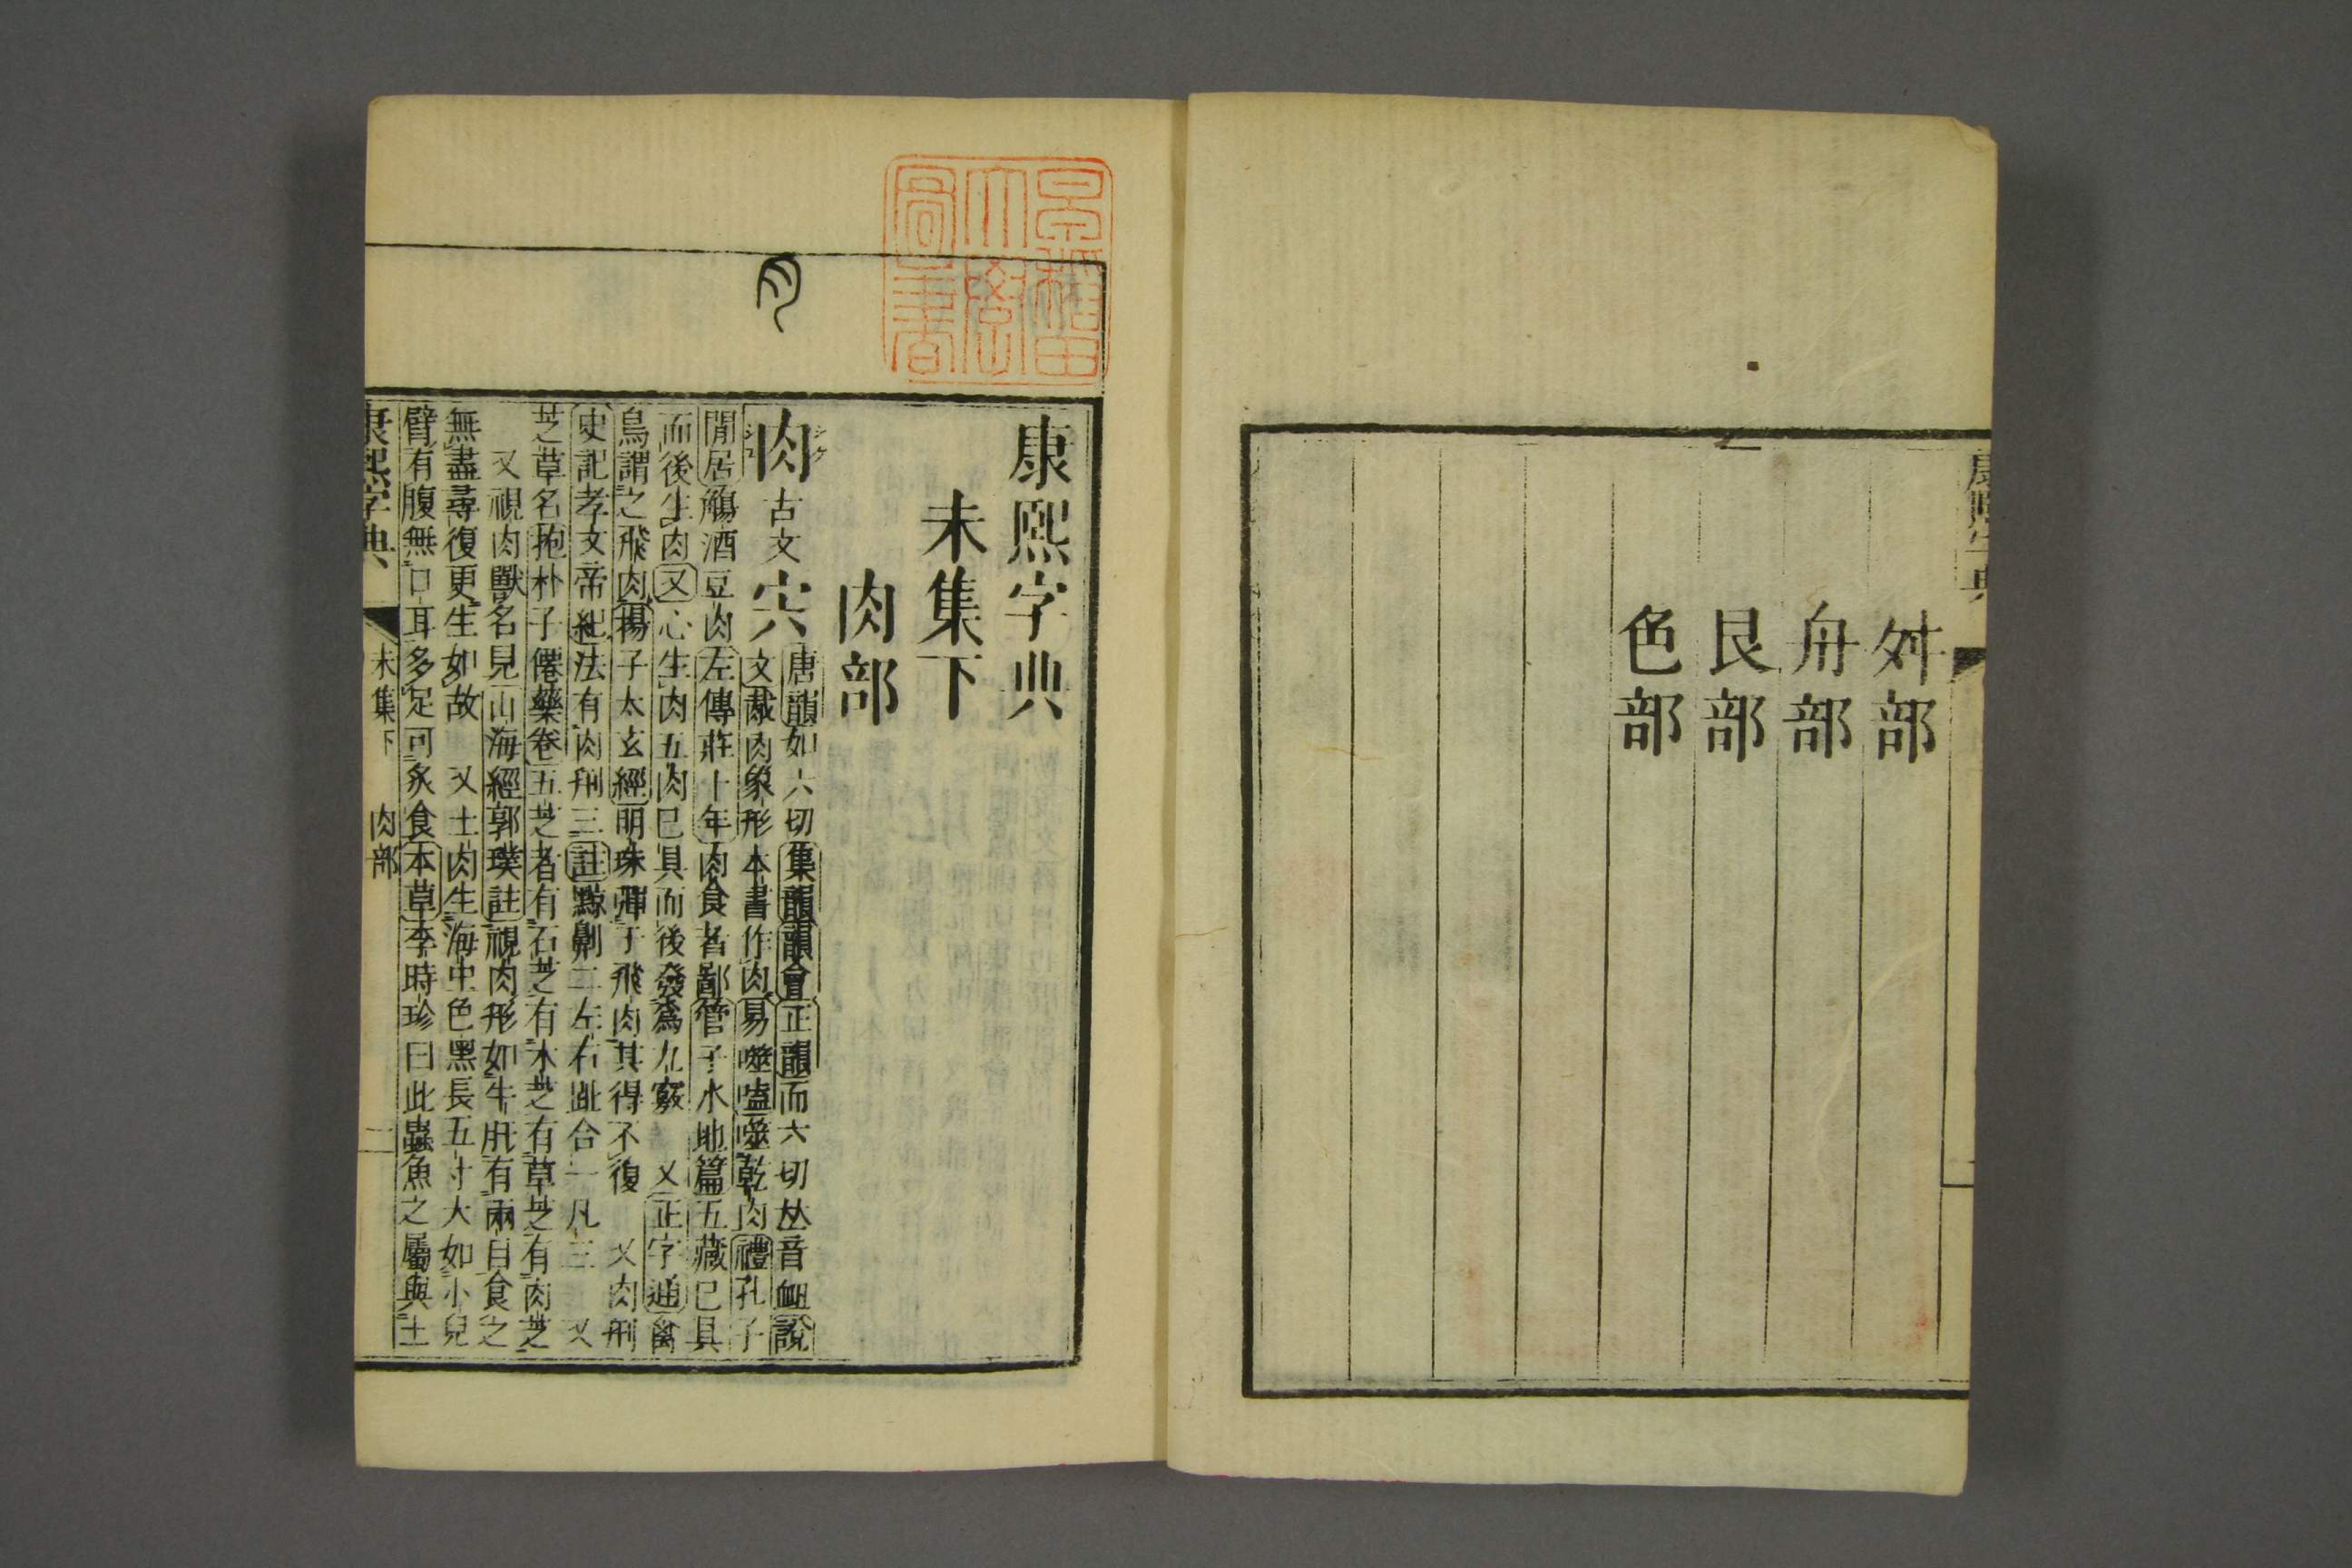 康熙字典
舛部
舟部
艮部
色部
早稲田
大學
圖書
康熙字典
未集下
肉部
肉古文宍唐韻如六切集韻韻會正韻而六切𠀤音衄說
文胾肉象形本書作肉易噬嗑噬乾肉禮孔子
閒居觴酒豆肉左傳莊十年肉食者鄙管子水地篇五藏已具
而後生肉又心生肉五肉已具而後發爲九竅 又正字通禽
鳥謂之飛肉揚子太玄經明珠彈于飛肉其得不復 又肉刑
史記孝文帝紀法有肉刑三註黥劓二左右趾合一凡三 又
芝草名抱朴子僊藥卷五芝者有石芝有木芝有草芝有肉芝
又視肉獸名見山海經郭璞註視肉形如牛肝有兩目食之
無盡尋復更生如故 又土肉生海中色黑長五寸大如小兒
臂有腹無口耳多足可炙食本草李時珍曰此蟲魚之屬與土
康熙字典 未集下 肉部 二